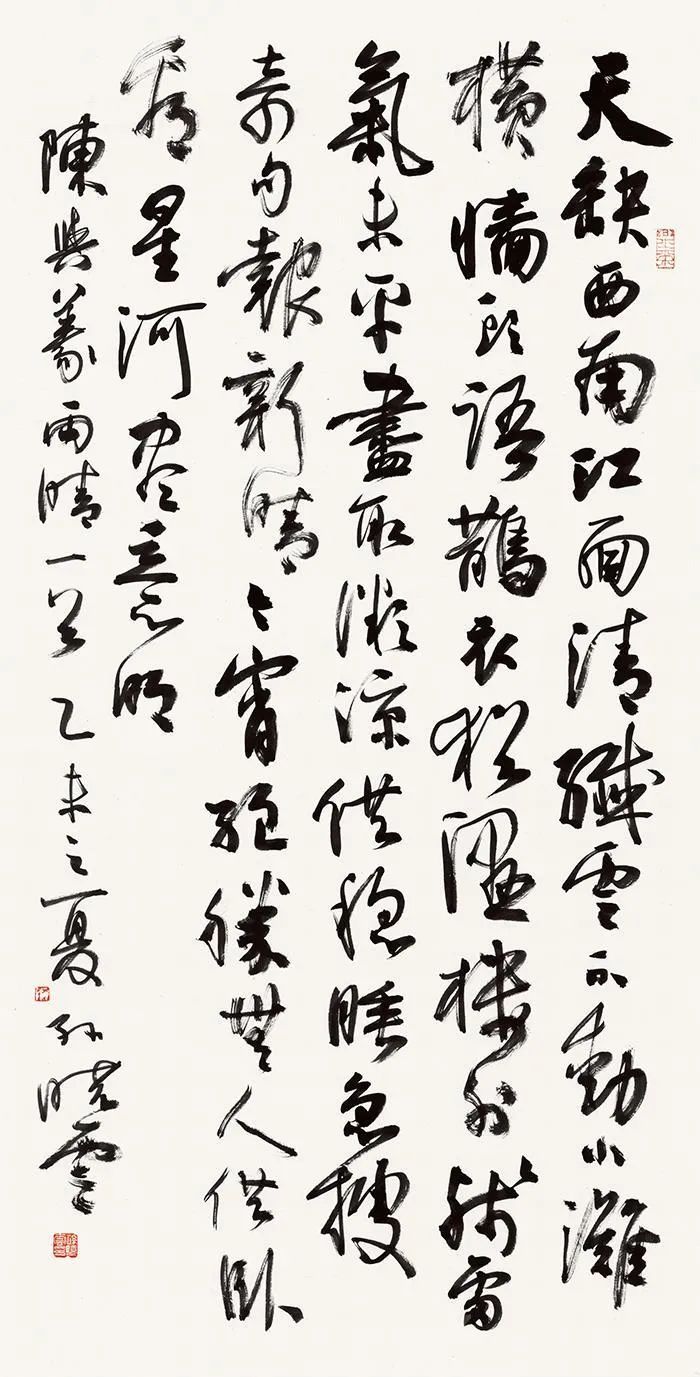 天缺西南江面清纖雲不動小灘
橫牆頭語鵲衣猶溼樓外殘雷
氣未平盡取微涼供穩睡急搜
奇句報新晴今宵絕勝無人供卧
看星河盡意明
陳與義雨晴一首乙未之夏孫曉雲